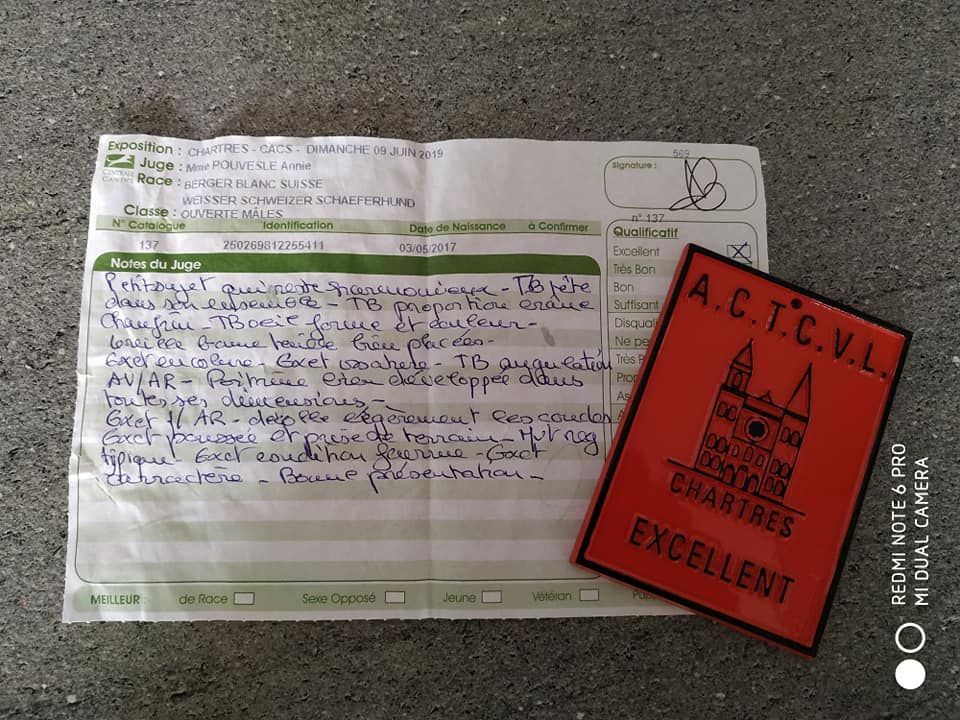 Exposition : CHARTRES - CACS - DIMANCHE 09 JUIN 2019
569
Juge : Mme POUVESLE Annie
Signature :
CENTRALE CANINE
Race : BERGER BLANC SUISSE
WEISSER SCHWEIZER SCHAEFERHUND
Classe : OUVERTE MÂLES
n° 137
N° Catalogue Identification Date de Naissance à Confirmer
137 250269812255411 03/05/2017
Qualificatif
Excellent
Très Bon
Bon
Suffisant
Disqual
Ne pe
Très B
Prop
As
A
Notes du Juge
Petit sujet qui reste harmonieux - TB tête
dans son ensemble - TB proportion crâne
Chanfrein - TB oeil forme et couleur -
oreille bonne texture bien placées -
Exct encolure - Exct ossature - TB angulation
AV/AR - Poitrine bien développée dans
toutes ses dimensions -
Exct A/AR - décolle légèrement les coudes
Exct poussée et prise de terrain -
typique - Exct condition - Exct
caractère - Bonne présentation -
MEILLEUR : de Race Sexe Opposé Jeune Vétéran Pup
A.C.T.C.V.L.
CHARTRES
EXCELLENT
REDMI NOTE 6 PRO
MI DUAL CAMERA